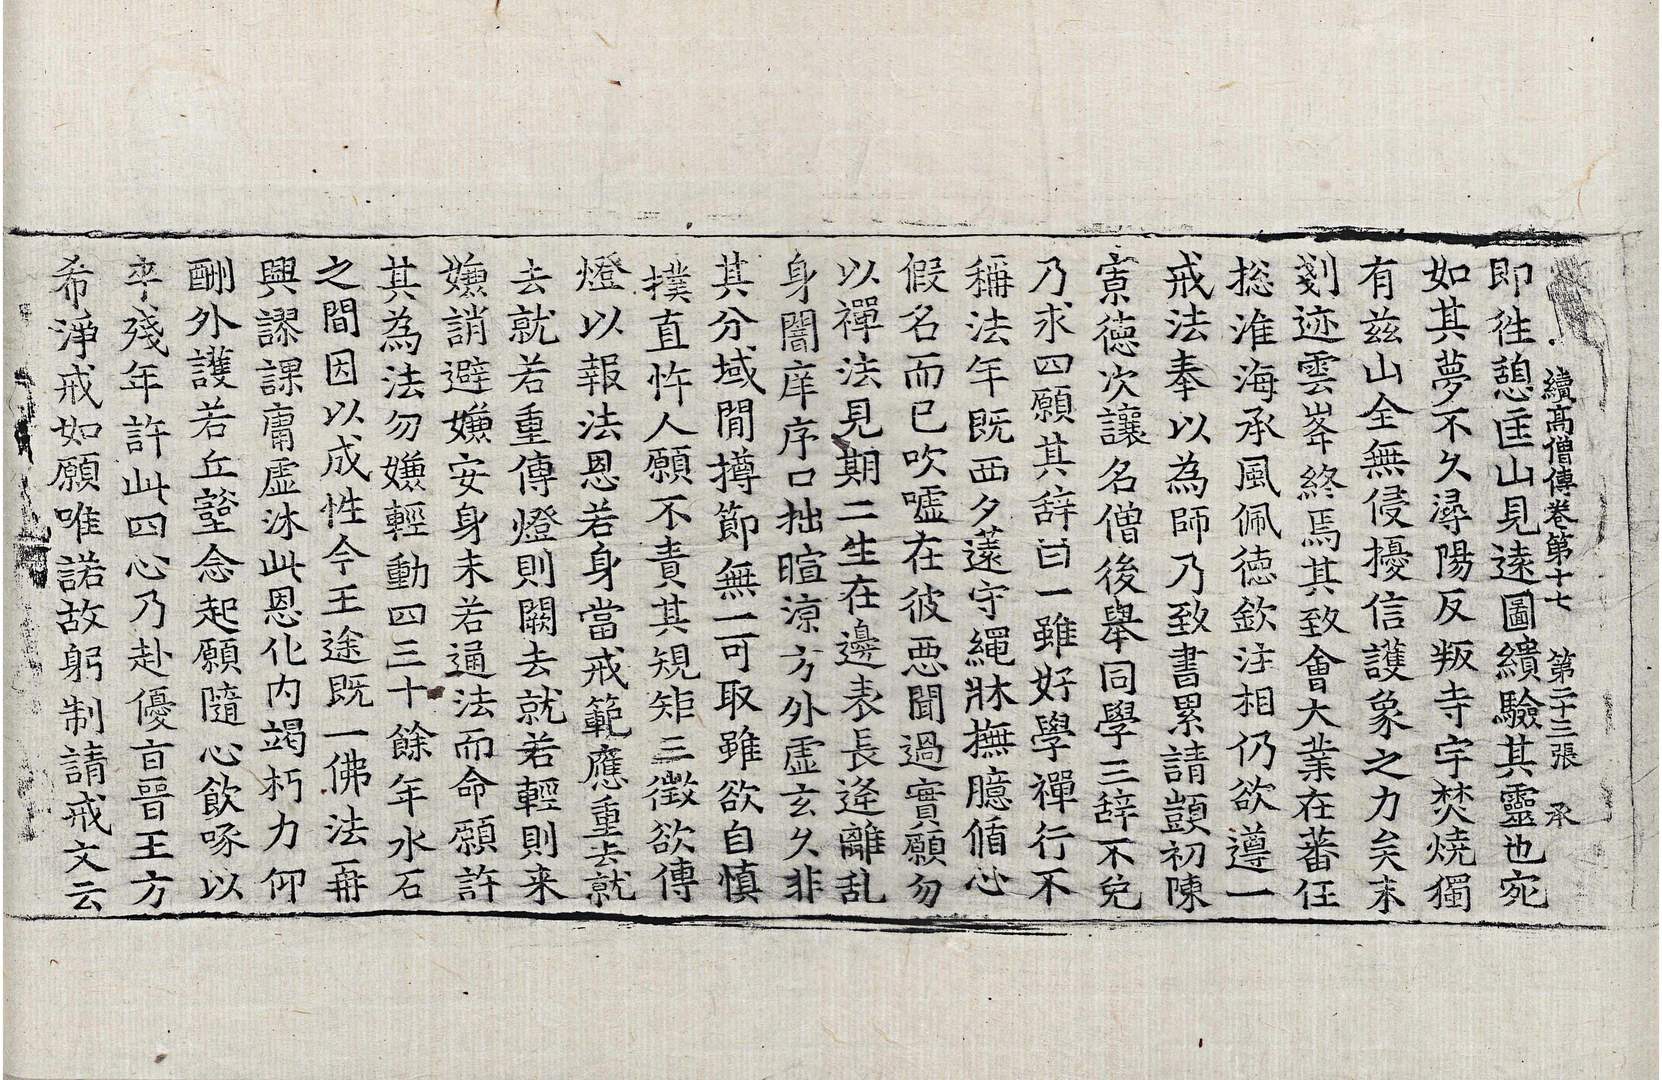 續高僧傳卷第十七　第二十三張　承
即徃憩匡山見遠圖繢驗其靈也宛
如其夢不久潯陽反叛寺宇焚燒獨
有兹山全無侵擾信護象之力矣末
剗迹雲峯終焉其致會大業在蕃任
捴淮海承風佩徳欽注相仍欲遵一
戒法奉以為師乃致書累請顗初陳
寡徳次讓名僧後舉同學三辝不免
乃求四願其辝曰一雖好學禪行不
稱法年既西夕薳守繩牀撫臆循心
假名而已吹嘘在彼惡聞過實願勿
以禪法見期二生在邊表長逄離乱
身闇庠序口拙暄涼方外虛玄久非
其分域閒撙節無一可取雖欲自慎
撲直忤人願不責其規矩三徵欲傳
燈以報法恩若身當戒範應重去就
去就若重傳燈則闕去就若輕則来
嫌誚避嫌安身未若通法而命願許
其為法勿嫌輕動四三十餘年水石
之間因以成性今王途既一佛法再
興謬課庸虛沐此恩化内竭朽力仰
酬外護若丘壑念起願隨心飲啄以
卒殘年許此四心乃赴優旨晉王方
希淨戒如願唯諾故躬制請戒文云